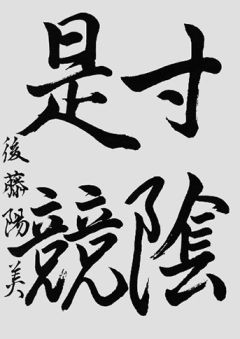 寸陰
是競
後藤陽美